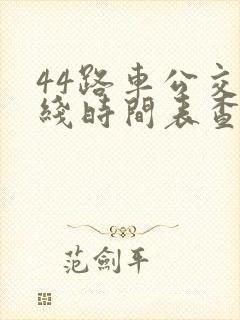 44路車公交
綫時間表查
范劍平